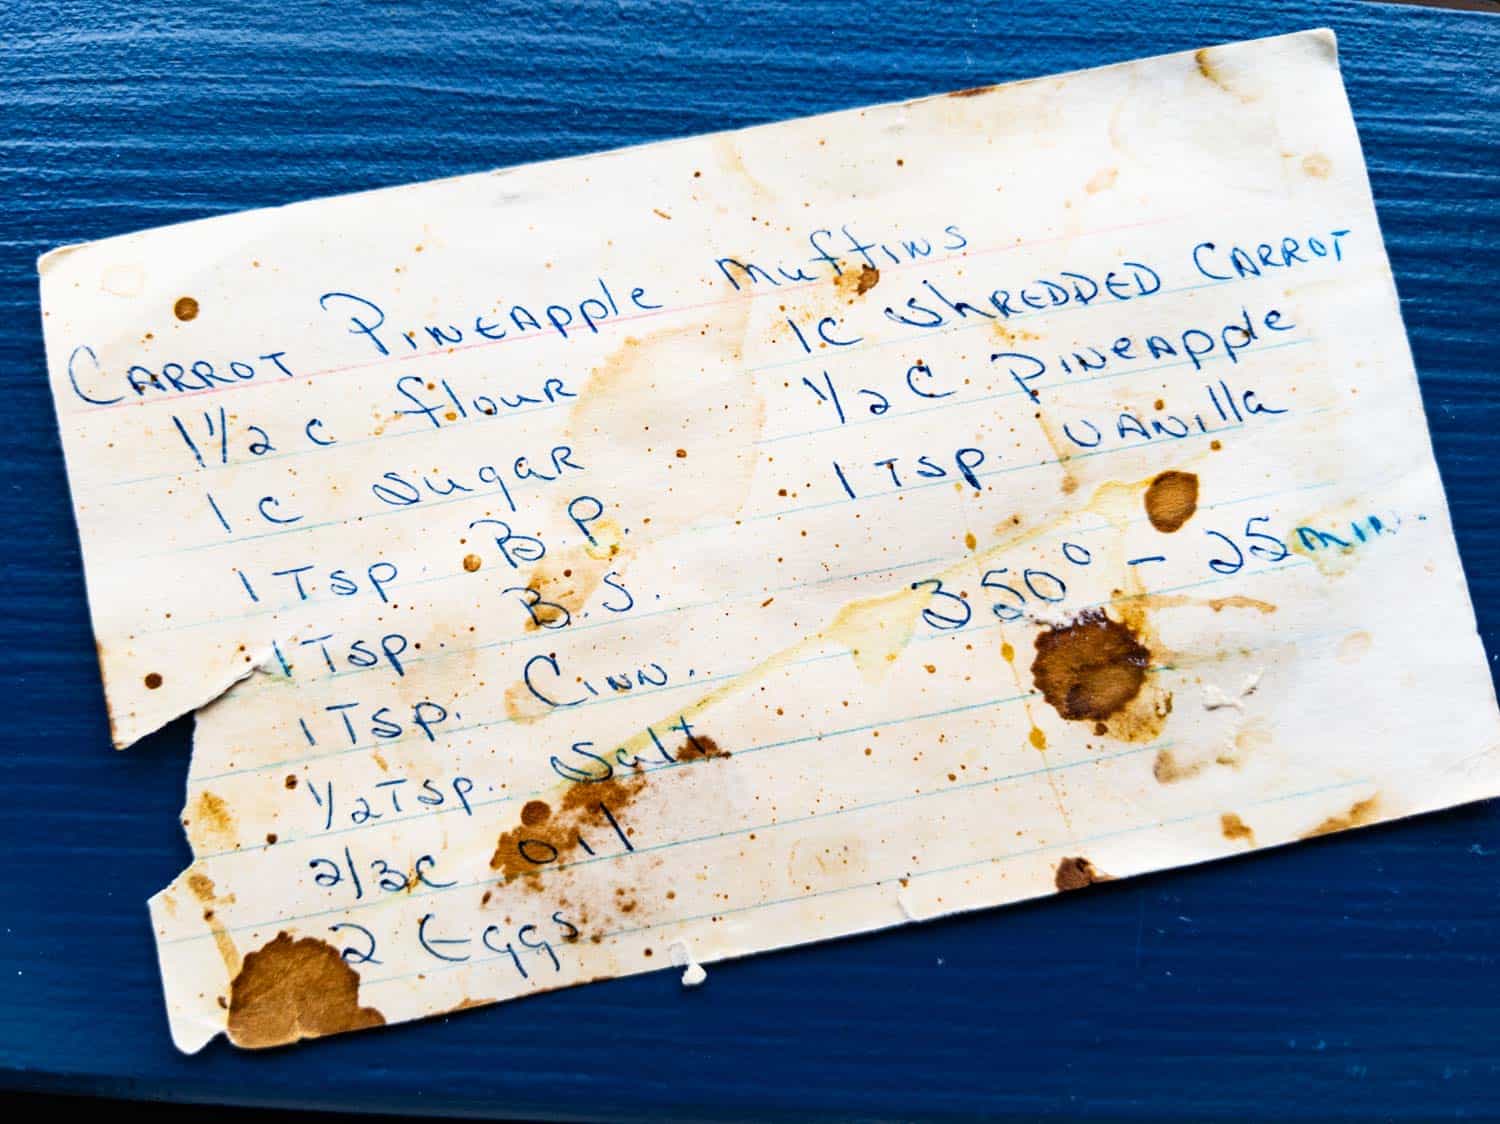 CARROT PINEAPPle muffins
1 1/2 c flour
1 c sugar
1 Tsp. B.P.
1 Tsp. B.S.
1 Tsp. Cinn.
1/2 Tsp. Salt
2/3 c oil
2 Eggs
1 C ShREDDED CARROT
1/2 C PINeAPPle
1 Tsp. VANilla
350° - 25 min.